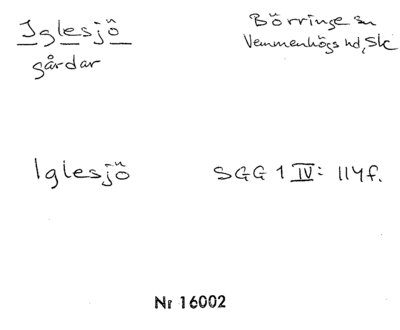 Iglesjö
gårdar
Börringe sn
Vemmenhögs hd, Sk
Iglesjö
SGG 1 IV: 114f.
Nr 16002